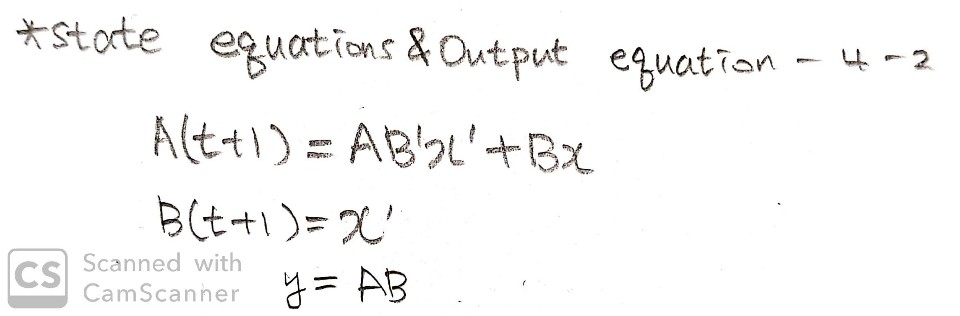 *State equations & Output equation - 4-2
A(t+1) = AB'x' + Bx
B(t+1) = x'
y = AB
CS Scanned with CamScanner